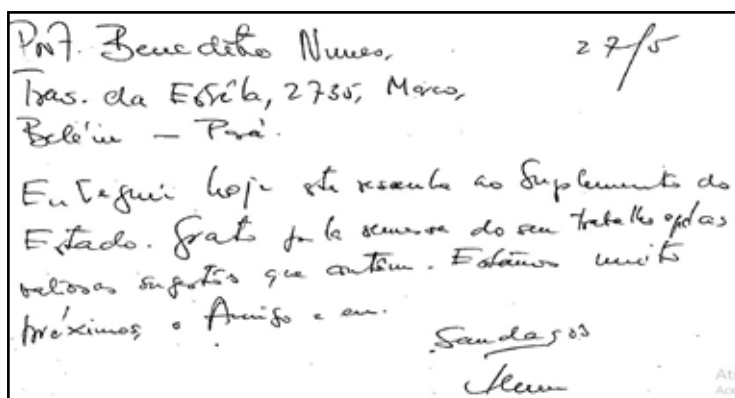 Prof. Benedito Nunes, 27/5
Trav. da Estrêla, 2735, Marco,
Belém — Pará.
Entreguei hoje esta resenha ao Suplemento do
Estado. Grato pela remessa do seu trabalho e pelas
valiosas sugestões que contém. Estamos muito
próximos, o Amigo e eu.
Saudações
Ati
Ace